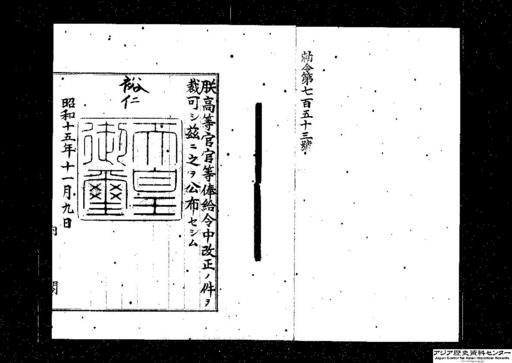 勅令第七百五十三號
朕高等官官等俸給令中改正ノ件ヲ
裁可シ茲ニ之ヲ公布セシム
裕仁
天皇
御璽
昭和十五年十一月九日
内
閣
アジア歴史資料センター
Japan Center for Asian Historical Records